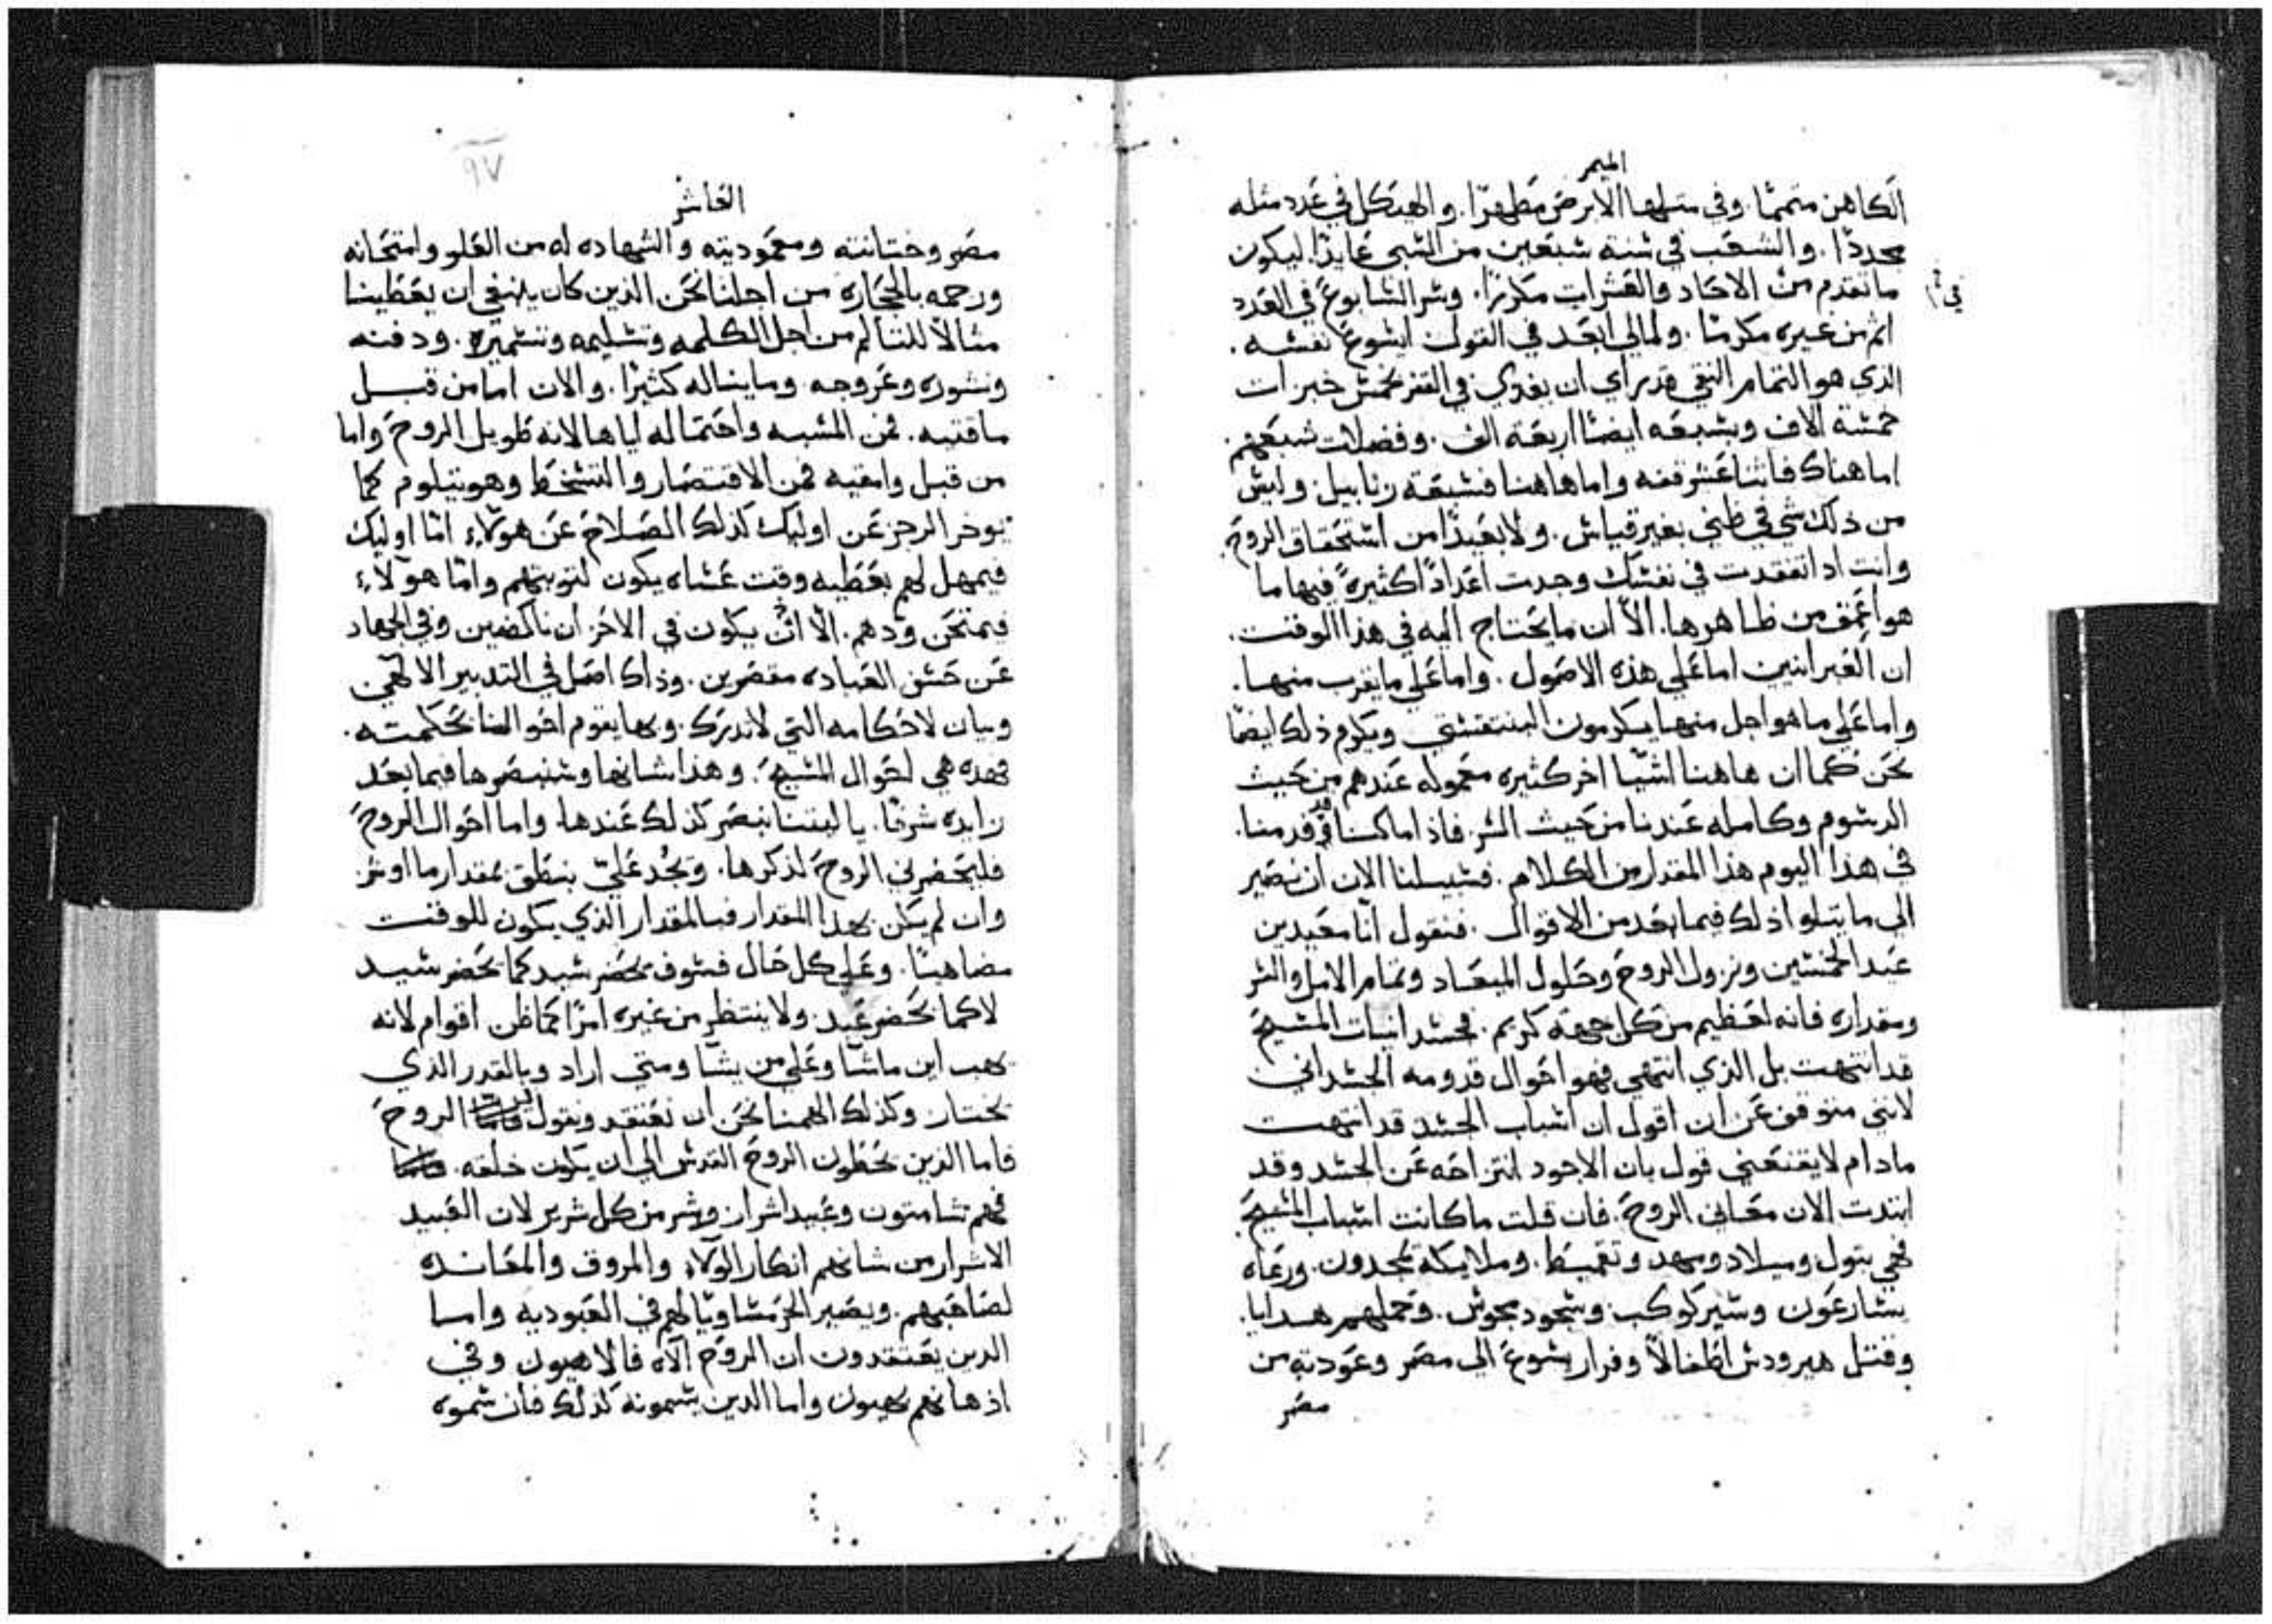 الميمر
الكاهن متمما. وفي مثلها الارض مطهرا. والهيكل في عدد مثله
مجددا. والشعب في سنة سبعين من السبي عايدا. ليكون
ما تقدم من الاحاد والعشرات مكرزا. وسر السابوع في العدد
في
اثر من غيره مكرما. ولما لي ابعد في القول ايسوع نفسه.
الذي هو التمام النقي قد راي ان يغدي في القفر بخمس خبزات
خمسة الاف وبسبعه ايضا اربعة الف. وفضلات شبعهم.
اما هناك فاثنا عشر قفه واما هاهنا فسبعة زنابيل. وليس
من ذلك شي في ظني بغير قياس. ولا بعيدا من استحقاق الروح.
وانت اذا تفقدت في نفسك وجدت اعدادا كثيرة فيها ما
هو اعمق من ظاهرها. الا ان ما يحتاج اليه في هذا الوقت.
ان العبرانيين اما علي هذه الاصول. واما علي ما يقرب منها.
واما علي ما هو اجل منها يكرمون البنتقستي ويكرم ذلك ايضا
نحن كما ان هاهنا اشيا اخر كثيره معموله عندهم من حيث
الرسوم وكامله عندنا من حيث السر. فاذا ما كنا قد قدمنا.
في هذا اليوم هذا المقدار من الكلام. فسبيلنا الان ان نصير
الي ما يتلوا ذلك فيما بعد من الاقوال. فنقول انا معيدين
عيد الخمسين ونزول الروح وحلول الميعاد وتمام الامل والسر
ومقداره فانه لعظيم من كل جهه كريم. فجسدانيات المسيح
قد انتهت بل الذي انتهي فهو احوال قدومه الجسداني
لانني متوقف عن ان اقول ان اسباب الجسد قد انتهت
مادام لا يقنعني قول بان الاجود انتزاحه عن الجسد وقد
ابتدت الان معاني الروح. فان قلت ما كانت اسباب المسيح.
فهي بتول وميلاد ومهد وتقميط. وملايكة يمجدون. ورعاه
يسارعون وسير كوكب وسجود مجوس. وحملهم هدايا.
وقتل هيرودس اطفالا وفرار يسوع الي مصر وعودته من
مصر
٩٧
العاشر
مصر وختانته ومعموديته والشهاده له من العلو وامتحانه
ورجمه بالحجاره من اجلنا نحن الذين كان ينبغي ان يعطينا
مثالا للتالم من اجل الكلمه وتسليمه وتسميره. ودفنه
ونشوره وعروجه وما يناله كثيرا. والان اما من قبل
ماقتيه. فمن المسبه واحتماله اياها لانه طويل الروح واما
من قبل وامقيه فمن الاقتصار والتسخط وهو يتلوم كما
يوخر الرجز عن اوليك كذلك الصلاح عن هولاء اما اوليك
فيمهل لهم بعطيه وقت عساه يكون لتوبتهم واما هولاء
فيمتحن ودهم. الا ان يكون في الاخر ان ناكصين وفي الجهاد
عن حسن العباده مقصرين. وذاك اصل في التدبير الالهي
وبيان لاحكامه التي لا تدرك. وبها يقوم احوالنا بحكمته.
فهذه هي احوال المسيح. وهذا شانها وسنبصرها فيما بعد
زايده شرفا. يا ليتنا نبصر كذلك عندها. واما احوال الروح
فليحضرني الروح لذكرها. ويجد علي بنطق بمقدار ما اوثر
وان لم يكن بهذا المقدار فبالمقدار الذي يكون للوقت
مضاهيا. وعلي كل حال فسوف يحضر سيد كما يحضر سيد
لا كما يحضر عبد. ولا ينتظر من غيره امرا كما ظن اقوام لانه
يهب اين ما شا وعلي من يشا ومتي اراد وبالقدر الذي
يختار وكذلك الهمنا نحن ان نعتقد ونقول الروح
فاما الذين يحطون الروح القدس الي ان يكون خلقه.
فهم شامتون وعبيد اشرار وشر من كل شرير لان العبيد
الاشرار من شانهم انكار الولاء والمروق والمعانده
لصاحبهم. ويصير الحر مساويا لهم في العبوديه واما
الذين يعتقدون ان الروح الاه فالاهيون وفي
اذهانهم بهيون واما الذين يسمونه كذلك فان سموه